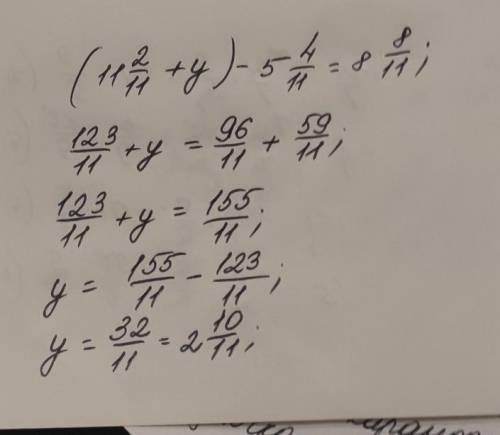 (11 2/11 + y) - 5 4/11 = 8 8/11;
123/11 + y = 96/11 + 59/11;
123/11 + y = 155/11;
y = 155/11 - 123/11;
y = 32/11 = 2 10/11;